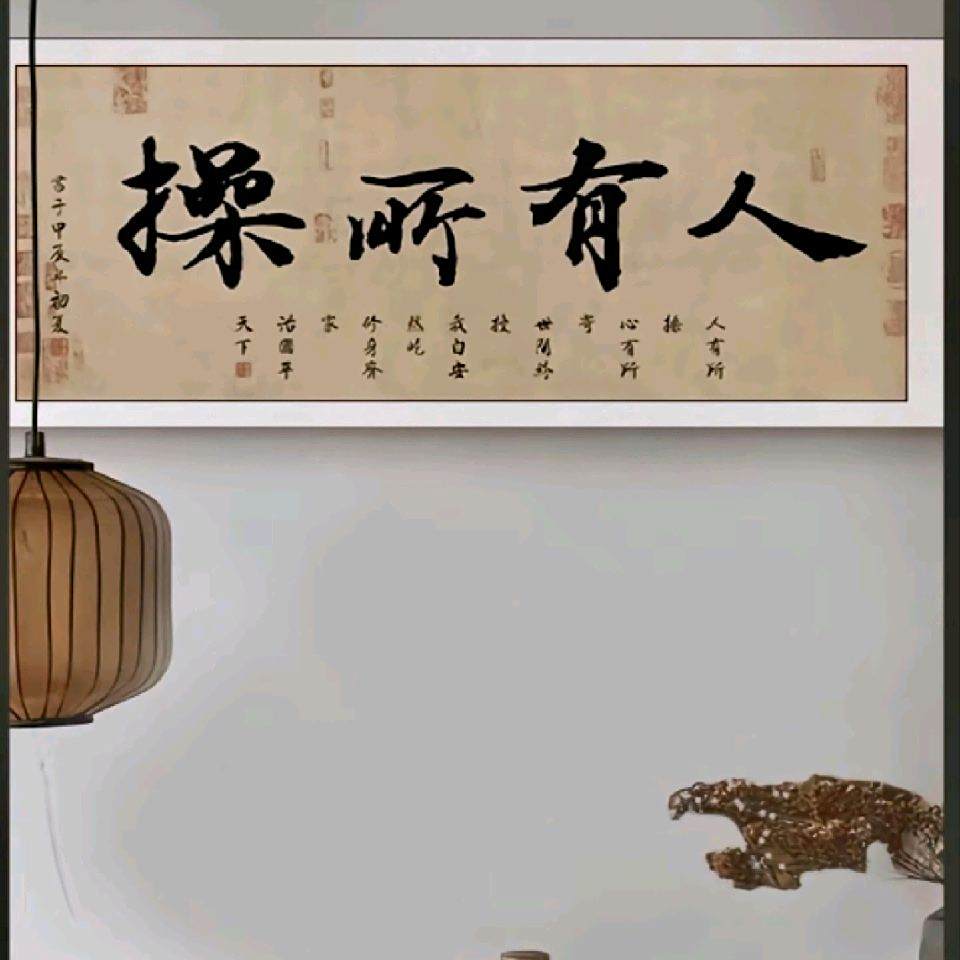 人有所操
人有所
操
心有所
寄
世間紛
擾
我自安
然屹
修身齊
家
治國平
天下
書于甲辰年初夏